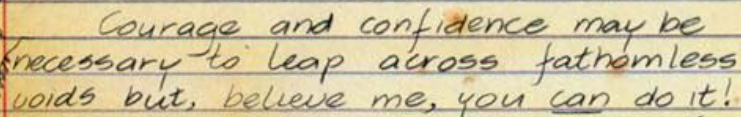 Courage and confidence may be
necessary to leap across fathomless
voids but, believe me, you can do it!